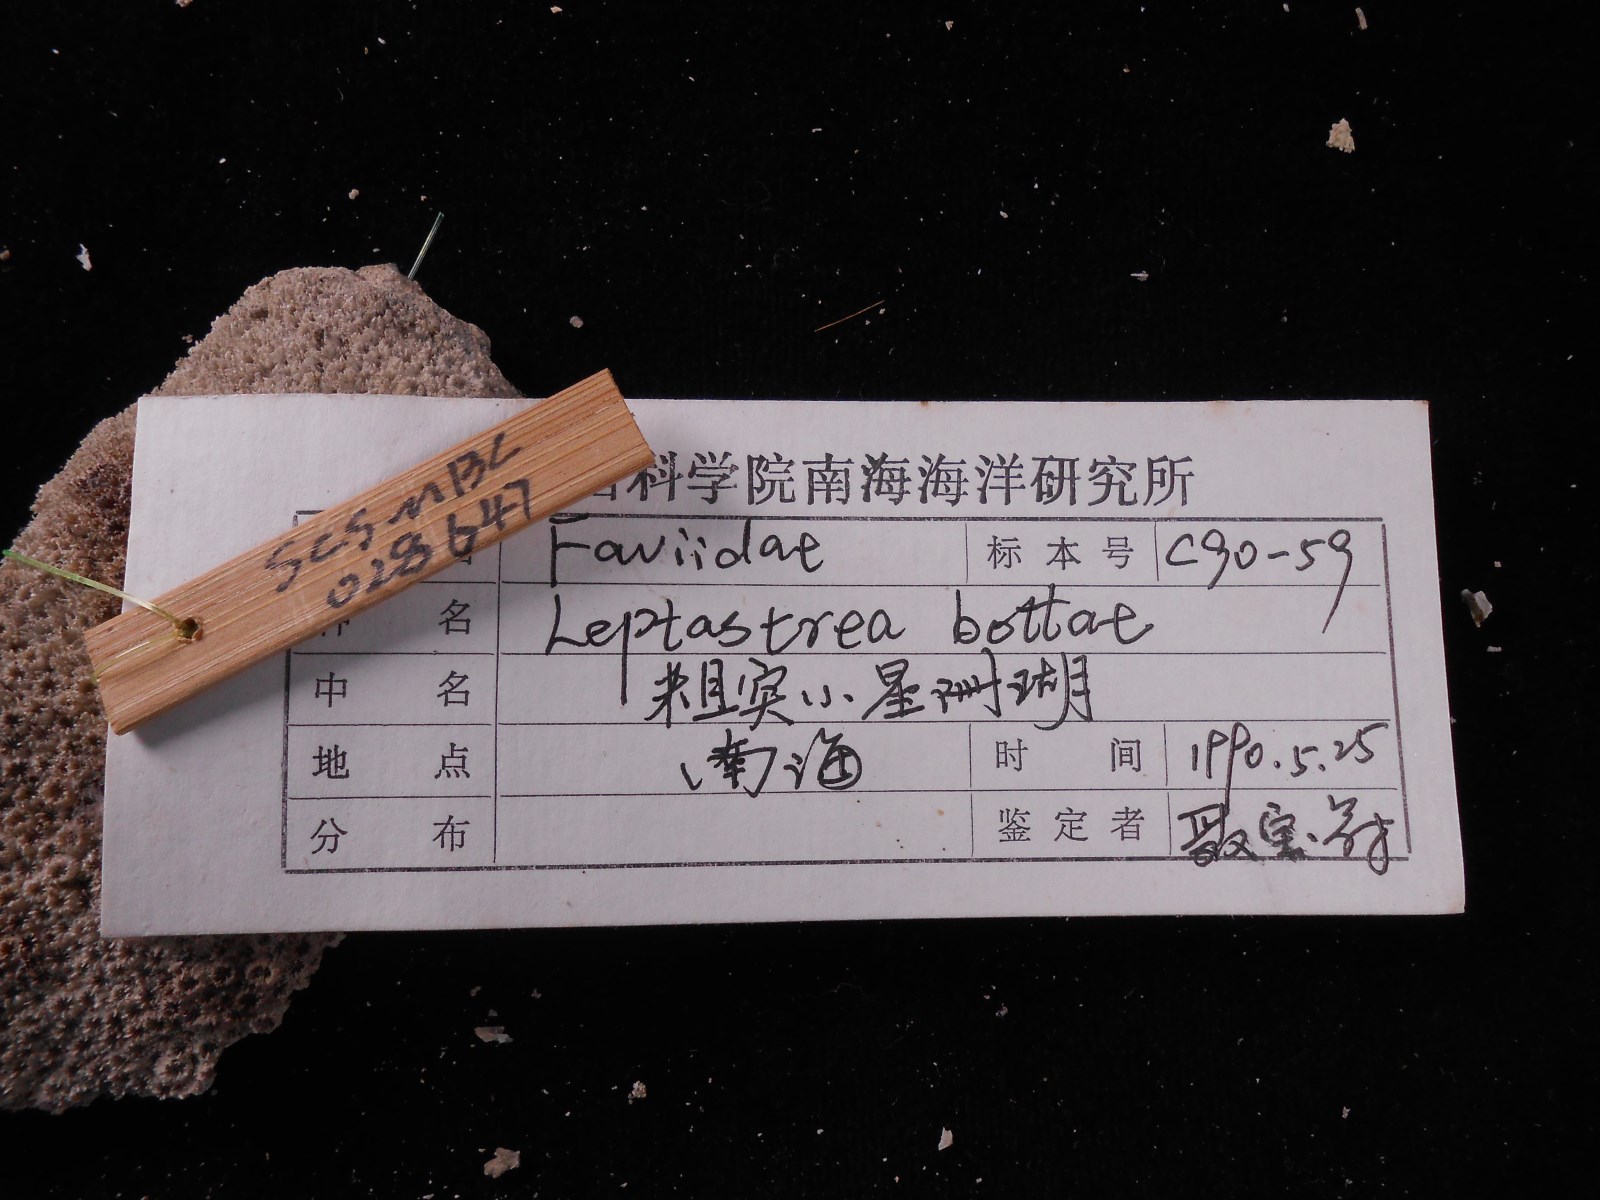 SCSMBC
028647
科学院南海海洋研究所
名 Faviidae 标本号 C90-59
名 Leptastrea bottae
中名 粗突小星珊瑚
地点 南海 时间 1990.5.25
分布 鉴定者